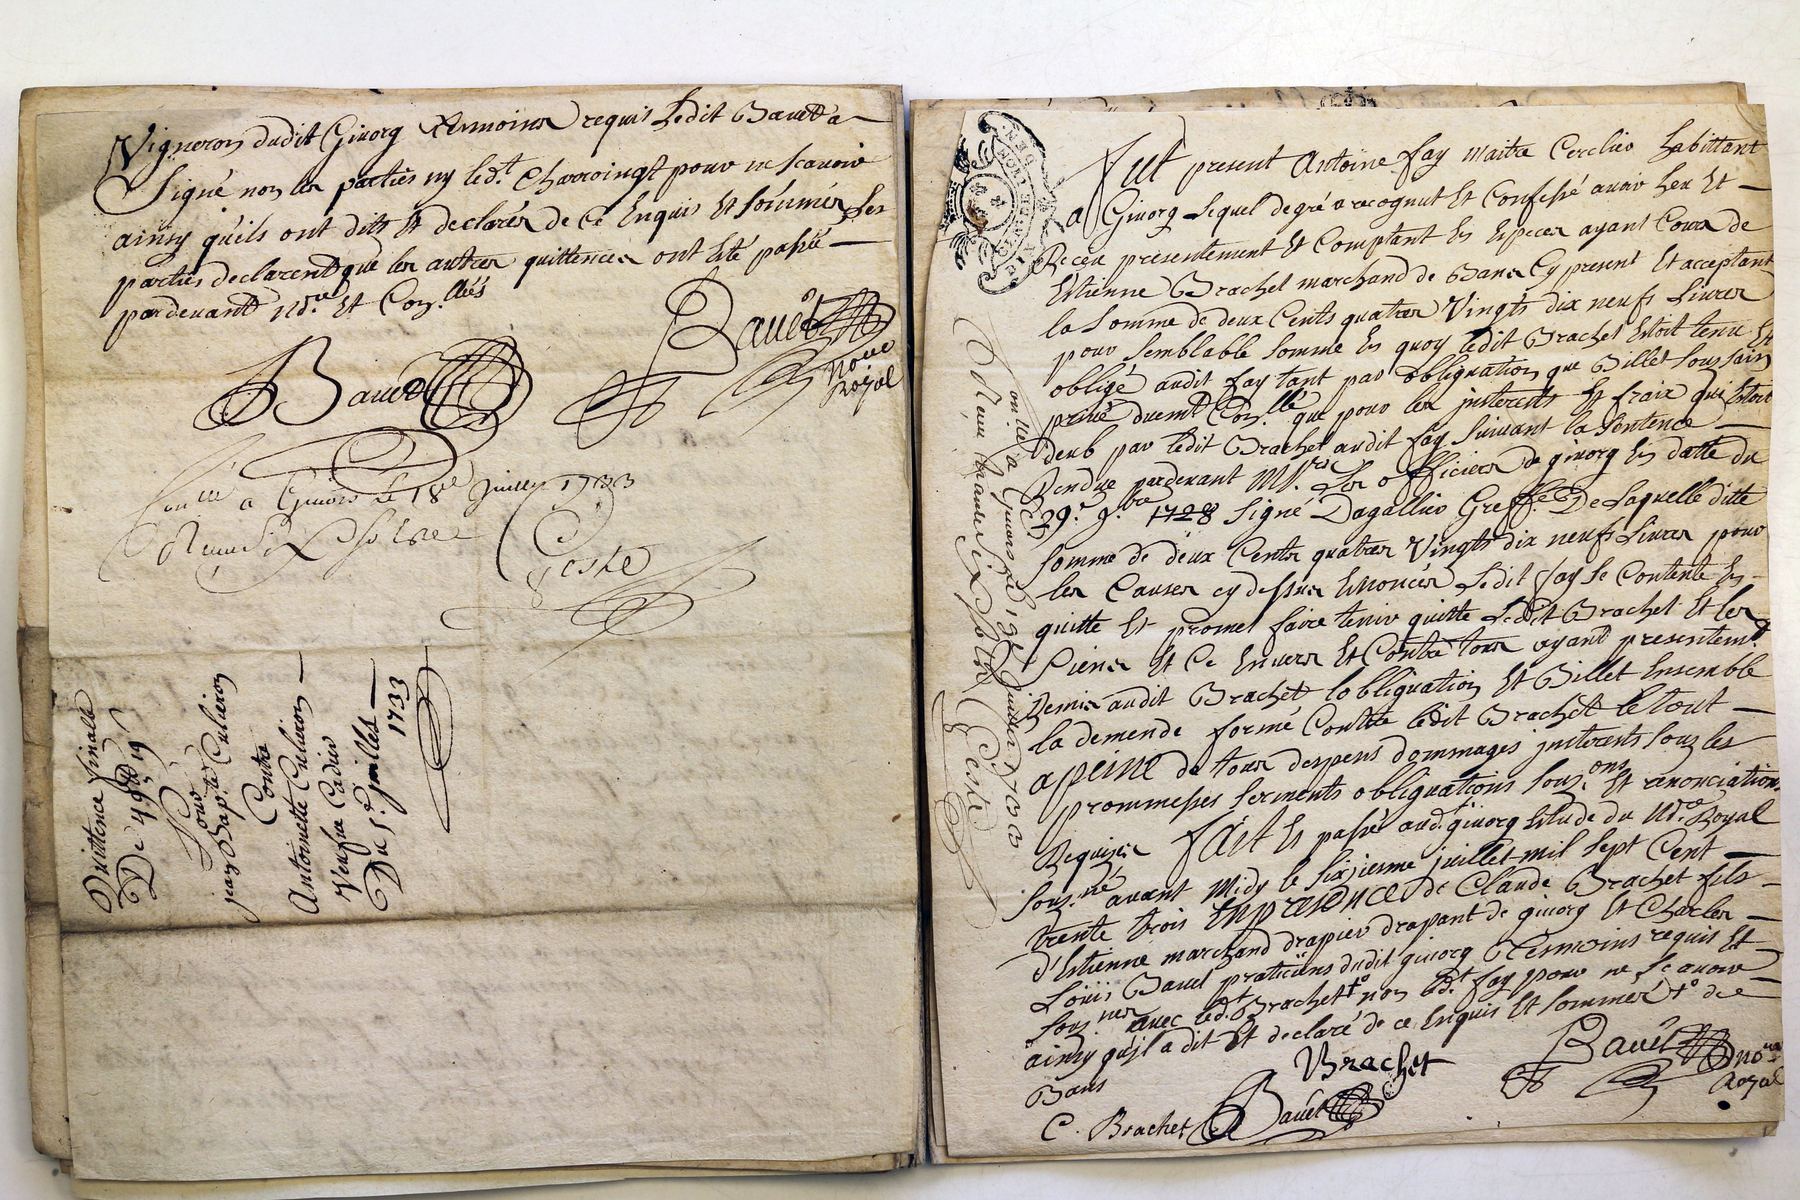 Vigneron dudit Givorg temoins requis ledit Bauet a
signé non les parties ny led.t Charroingt pour ne scavoir
ainsy quils ont dits et declarés de ce Enquis et sommés les
parties declarent que les autres quittences ont esté passée
pardevant nd.re et Con.lléș
Bauet
Bauet
no.re
Royal
Con.llé a Givors le 18e Juillet 1733
Receu six sols
Geste
Quittence finale
De 49
Pour
jean Bap.te Culieron
Contre
Antoinette Culieron
Veufve Cadier
Du 5e juillet
1733
DE LYON
Fut present Antoine fay maitre Cerclier habittant
a Givorg Lequel de gré a recognut et Confessé avoir heu et
Receu presentement et Comptant en Especes ayant Cours de
Estienne Brachet marchand de Bans Cy present et acceptant
la somme de deux Cents quatres Vingts dix neufs Livres
pour semblable somme en quoy ledit Brachet Estoit tenu et
obligé audit fay tant par obliguation que Billet sous sain
privé duemt Con.llé que pour les jnterests et fraix qui Estoit
deub par ledit Brachet audit fay suivant la sentence
Rendue pardevant M.rs Les officiers de givorg en datte du
29.e 9.bre 1728 signé Dagallier Greff.r De laquelle ditte
somme de deux Cents quatres Vingts dix neufs Livres pour
les Causes cy dessus Enoncés ledit fay se Contente en
quitte et promet faire tenir quitte Ledit Brachet et les
siens et ce Envers et Contre tous ayant presentemt
Remis audit Brachet lobliguation et Billet Ensemble
la demende formé Contre ledit Brachet le tout
a peine de tous despens dommages jnterests sous les
prommesses serments obliguations sous.ons et renonciations
Requises fait et passé aud. givorg Estude du nd.re Royal
sous.né avant Midy le sixiesme juillet mil sept Cent
trente trois En presence de Claude Brachet fils
d'Estienne marchand drapier drapant de givorg et Charles
Louis Bauet praticiens dudit givorg temoins requis et
sous.nes avec led.t Brachet non led.t fay pour ne scavoir
ainsy quil a dit et declaré de ce Enquis et sommé de
Bans
Brachet
Bauet
no.re
Royal
C. Brachet
Bauet
Con.llé a Givors le 19e Juillet 1733
Receu trante six sols
Geste